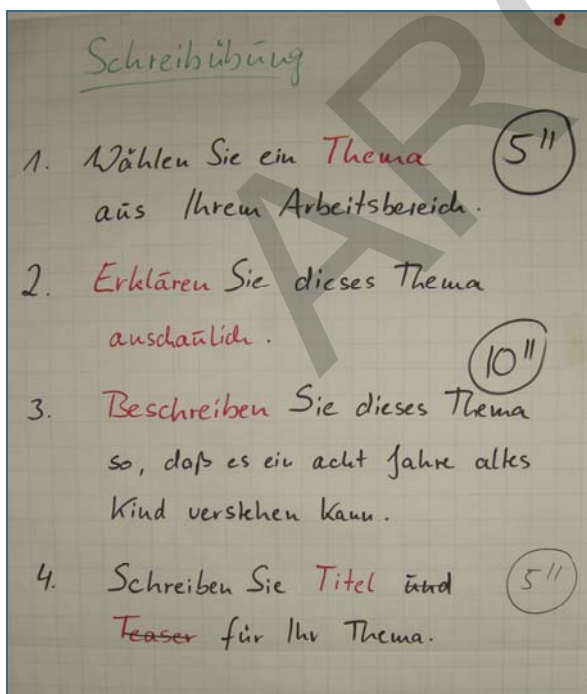 Schreibübung
1. Wählen Sie ein Thema 5"
aus Ihrem Arbeitsbereich.
2. Erklären Sie dieses Thema
anschaulich.
10"
3. Beschreiben Sie dieses Thema
so, daß es ein acht Jahre altes
Kind verstehen kann.
4. Schreiben Sie Titel und 5"
Teaser für Ihr Thema.